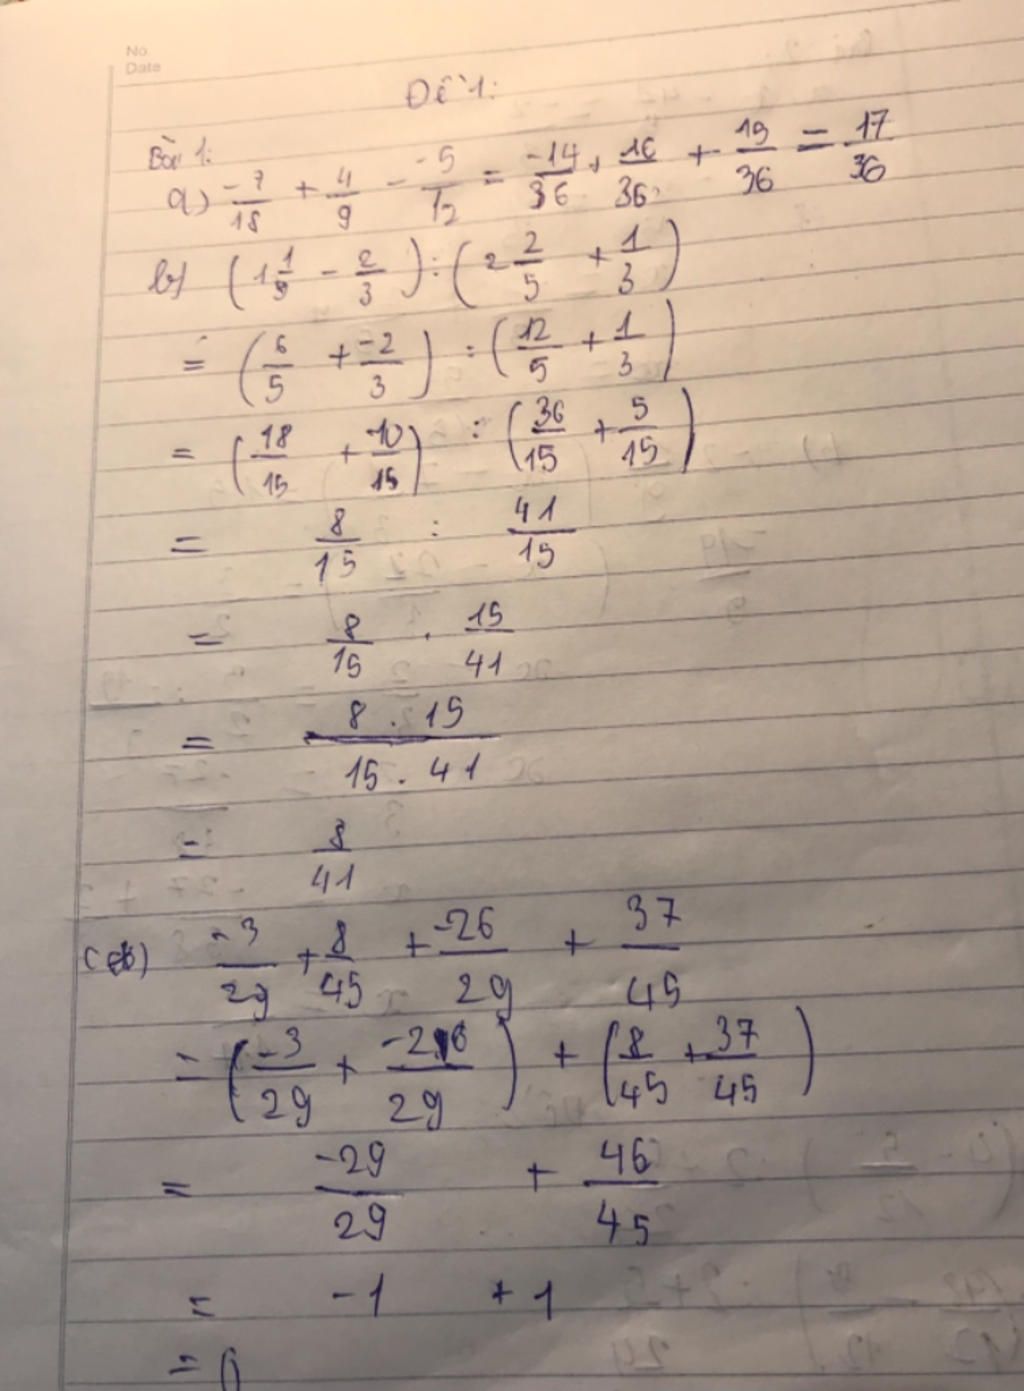 No.
Date
Đề 1:
Bài 1:
a) -7/18 + 4/9 - -5/12 = -14/36 + 16/36 + 19/36 = 17/36
b) (1 1/5 - 2/3) : (2 2/5 + 1/3)
= (6/5 + -2/3) : (12/5 + 1/3)
= (18/15 + -10/15) : (36/15 + 5/15)
= 8/15 : 41/15
= 8/15 . 15/41
= 8 . 15 / 15 . 41
= 8/41
c) -3/29 + 8/45 + -26/29 + 37/45
= (-3/29 + -26/29) + (8/45 + 37/45)
= -29/29 + 46/45
= -1 + 1
= 0